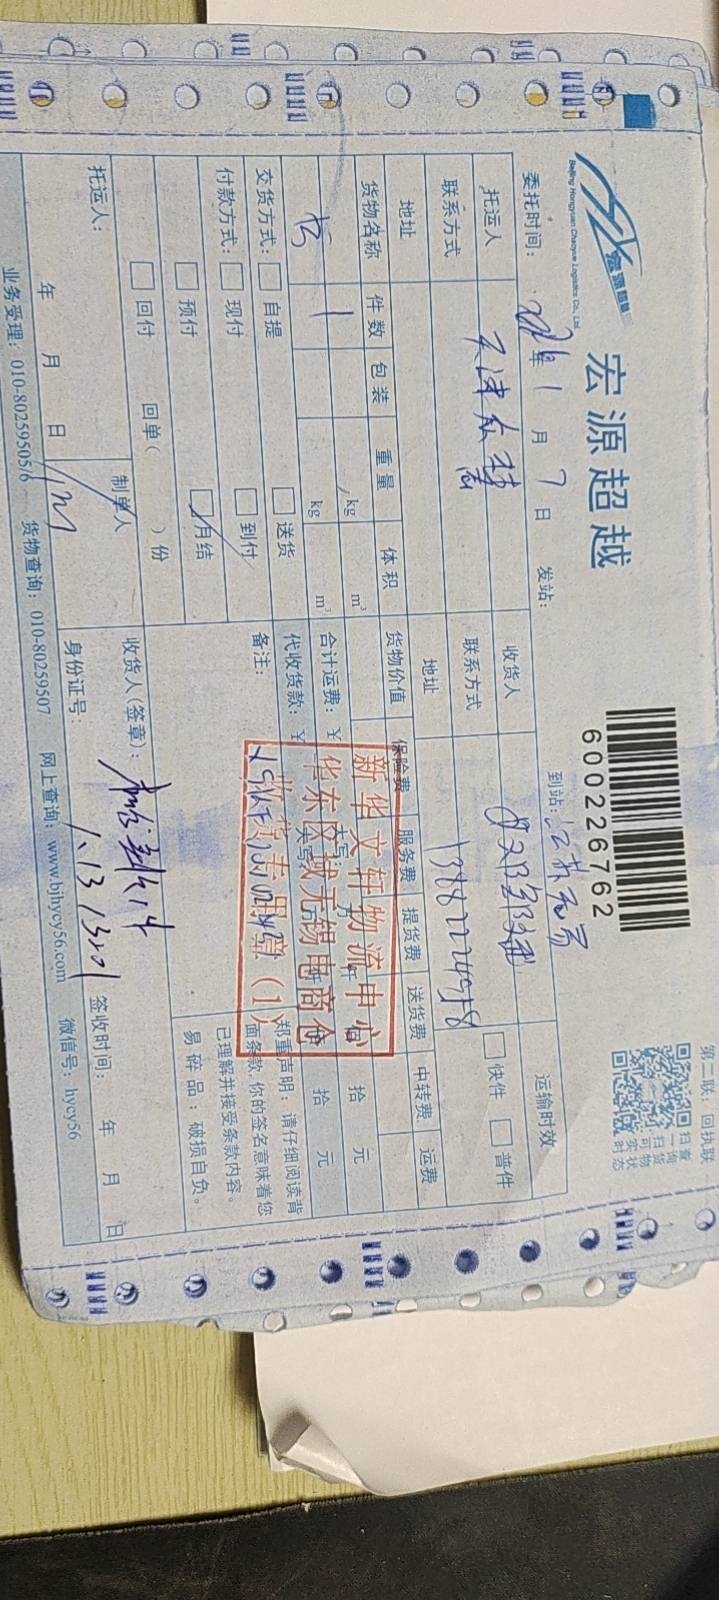 宏源超越
宏源超越
Beijing Hongyuan Chaoyue Logistics Co., Ltd.
600226762
第二联：回执联
扫一扫
查询货物
可视状态
委托时间： 年 1 月 7 日 发站： 到站：江苏无锡
托运人 收货人 运输时效
联系方式 联系方式 快件 普件
地址 地址
货物名称 件数 包装 重量 体积 货物价值 保险费 服务费 提货费 送货费 中转费 运费
书 1 kg m³
kg m³ 合计运费：¥ 大写： 万 仟 佰 拾 元
交货方式： 自提 送货 代收货款：¥ 大写： 万 仟 佰 拾 元
付款方式： 现付 到付 备注：
预付 月结
回付 回单（ ）份
新华文轩物流中心
华东区域无锡电商仓
收货专用章（1）
郑重声明：请仔细阅读背
面条款，你的签名意味着您
已理解并接受条款内容。
易碎品：破损自负。
托运人： 制单人 收货人（签章）：
年 月 日 身份证号： 签收时间： 年 月 日
1.13
业务受理：010-80259505/6 货物查询：010-80259507 网上查询：www.bjhycy56.com 微信号：hycy56